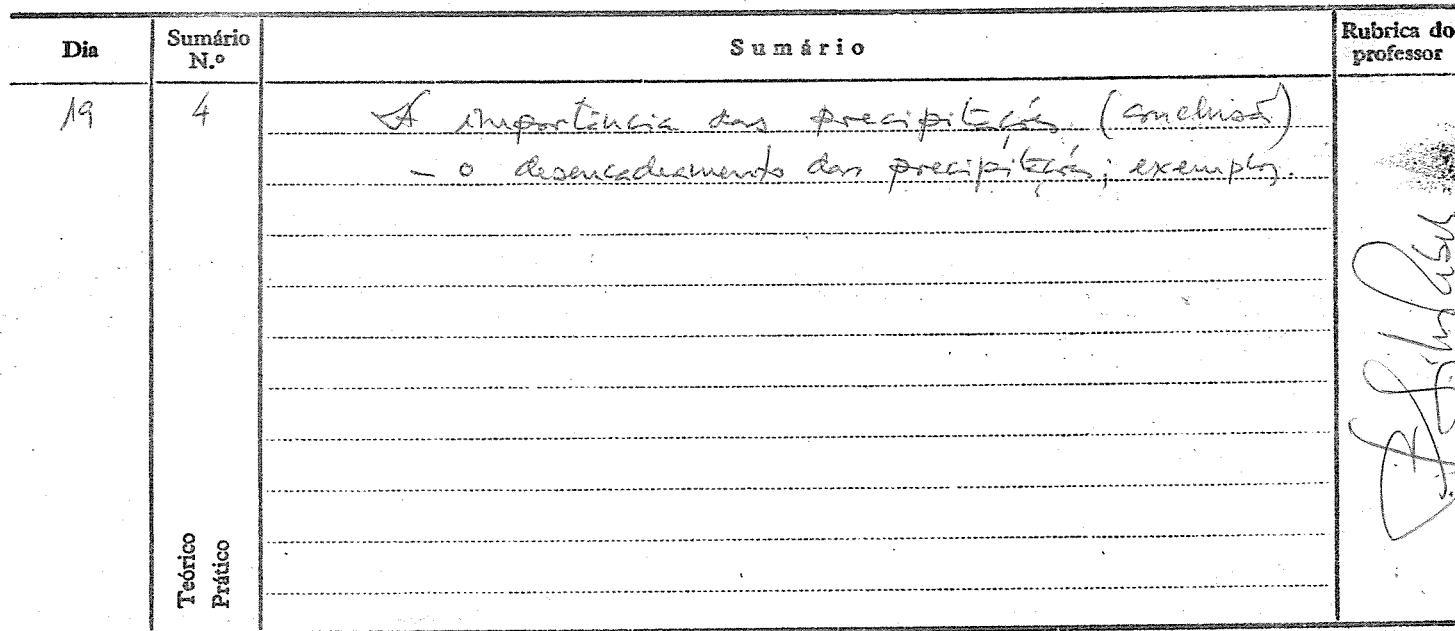 Dia
Sumário N.º
Sumário
Rubrica do professor
19
4
A importância das precipitações (conclusão)
- o desencadeamento das precipitações; exemplos.
Teórico
Prático